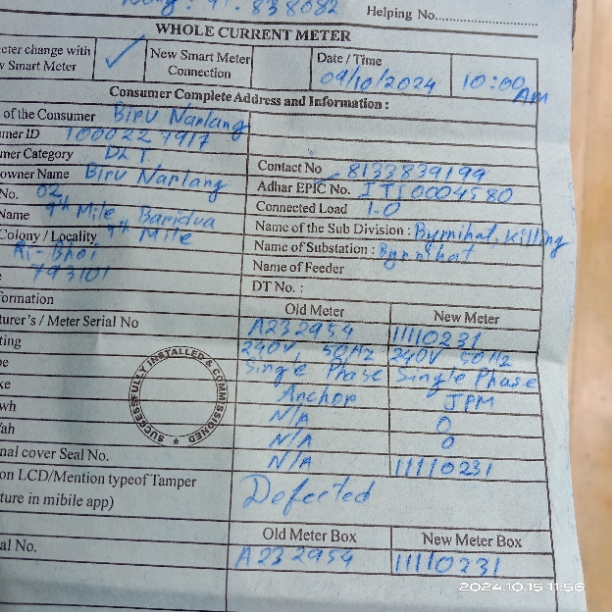 91.838082 Helping No.
WHOLE CURRENT METER
eter change with New Smart Meter Date / Time
w Smart Meter ✓ Connection 09/10/2024 10:00 AM
Consumer Complete Address and Information :
of the Consumer Biru Narlang
mer ID 1000227917
mer Category DLT
Contact No 8133839199
owner Name Biru Narlang
Adhar EPIC No. ITJ0004580
No. 02
Connected Load 1.0
Name 9th Mile Baridua
Name of the Sub Division : Byrnihat, Killing
Colony / Locality 9th Mile
Name of Substation : Byrnihat
Ri-Bhoi
Name of Feeder
793101
DT No. :
formation Old Meter New Meter
turer's / Meter Serial No A232954 11110231
ting 240V, 50Hz 240V 50Hz
pe Single Phase Single Phase
ke Anchor JPM
wh N/A 0
ah N/A 0
nal cover Seal No. N/A 11110231
SUCCESSFULLY INSTALLED & COMMISSIONED
on LCD/Mention typeof Tamper
ture in mibile app) Defected
Old Meter Box New Meter Box
al No. A232954 11110231
2024.10.15 11:56